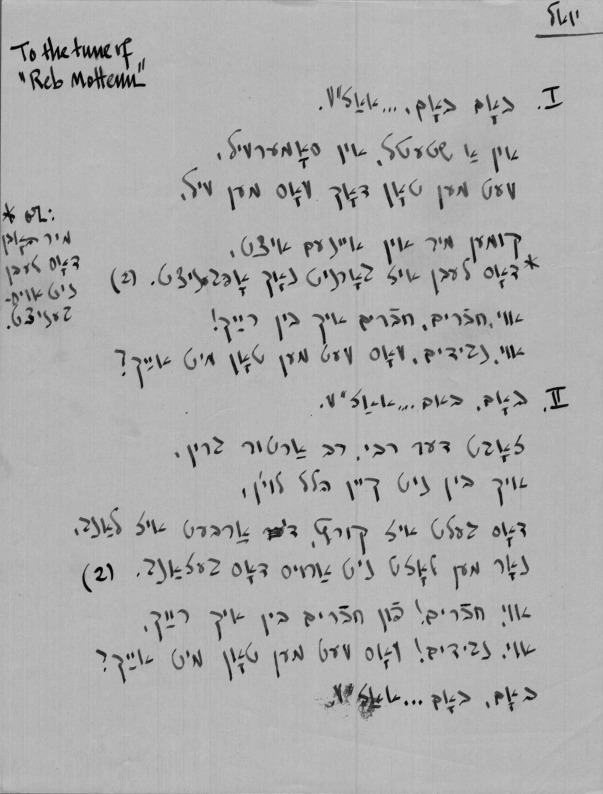 יואל
To the tune of
"Reb Mottenu"
I. באָם באָם, ...אאַז"וו.
אין אַ שטעטל, אין סאָמערוויל,
וועט מען טאָן דאָך וואָס מען וויל,
קומען מיר אין איינעם איצט,
*דאָס לעבן איז גאָרניט נאָך אָפּגעניצט. (2)
אוי, חבֿרים, חבֿרים איך בין רײַך!
אוי, נגידים, וואָס וועט מען טאָן מיט אײַך?
*
מיר האָבן
דאָס לעבן
ניט אויס-
געניצט.
II. באָם, באָם...אאַז"וו.
זאָגט דער רבי, רב אַרטור גרין,
איך בין ניט קיין הלל לוין,
דאָס געלט איז קורץ, אַרבעט איז לאַנג,
נאָר מען לאָזט ניט אַרויס דאָס געזאַנג. (2)
אוי, חבֿרים! פֿון חבֿרים בין איך רײַך,
אוי, נגידים! וואָס וועט מען טאָן מיט אײַך?
באָם, באָם...אאַז"וו.